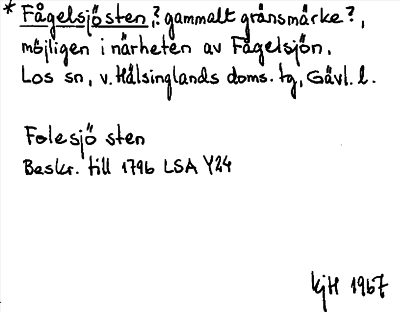 * Fågelsjösten, ? gammalt gränsmärke?,
möjligen i närheten av Fågelsjön.
Los sn, v. Hälsinglands doms. tg, Gävl. l.
Folesjö sten
Beskr. till 1796 LSA Y24
KjH 1967